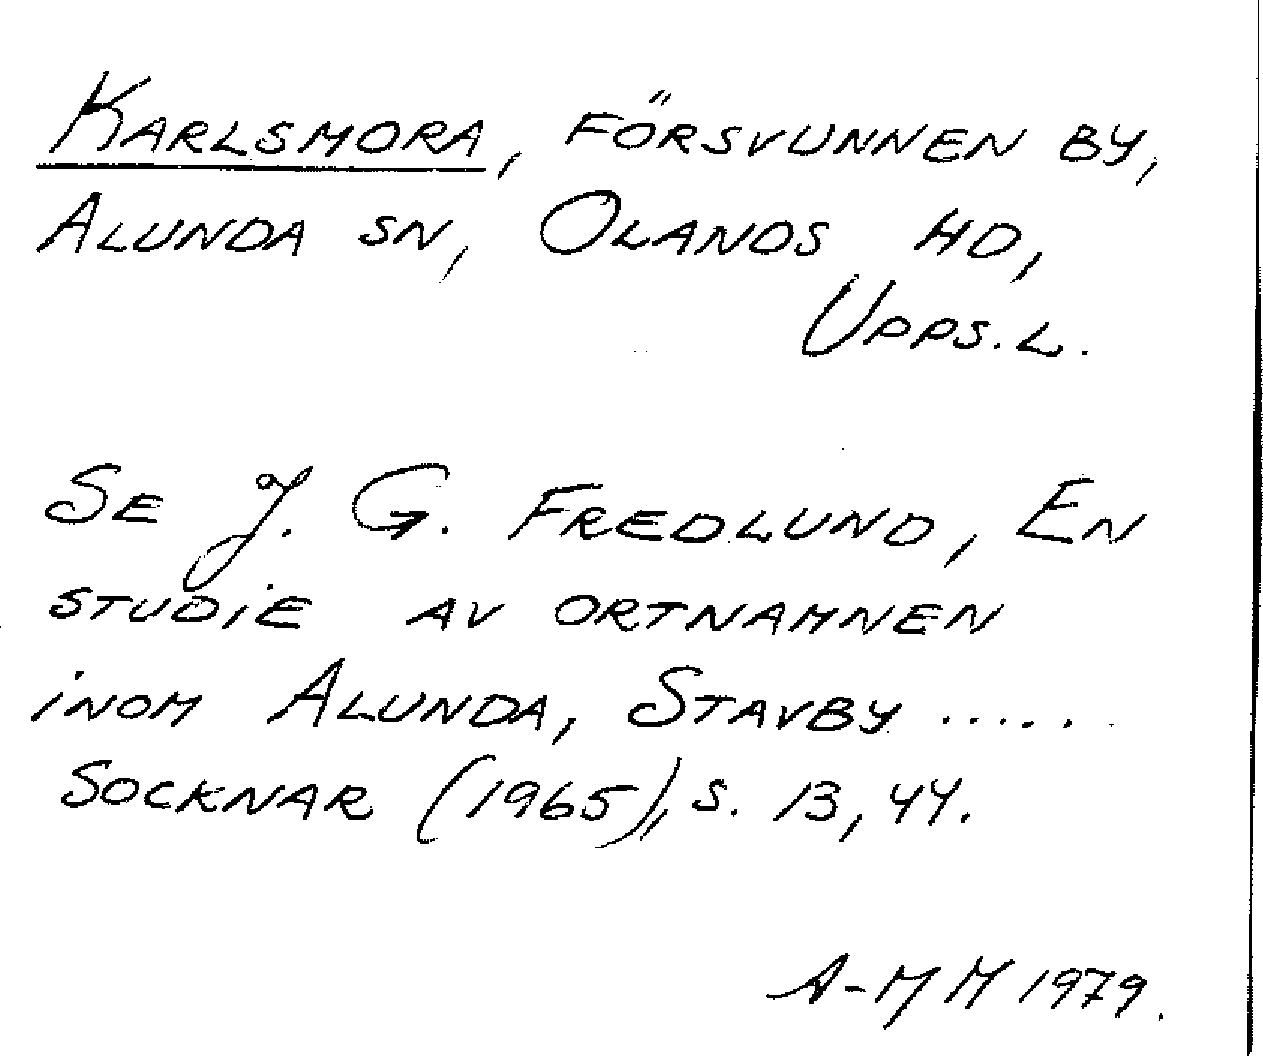 Karlsmora, försvunnen by,
Alunda sn, Olands hd,
Upps.l.
Se J. G. Fredlund, En
studie av ortnamnen
inom Alunda, Stavby ......
socknar (1965), s. 13, 44.
A-MM 1979.